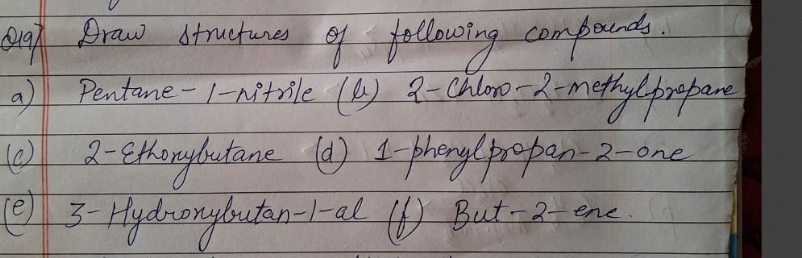 Q19) Draw structures of following compounds.
a) Pentane-1-nitrile (b) 2-Chloro-2-methylpropane
(c) 2-Ethoxybutane (d) 1-phenylpropan-2-one
(e) 3-Hydroxybutan-1-al (f) But-2-ene.